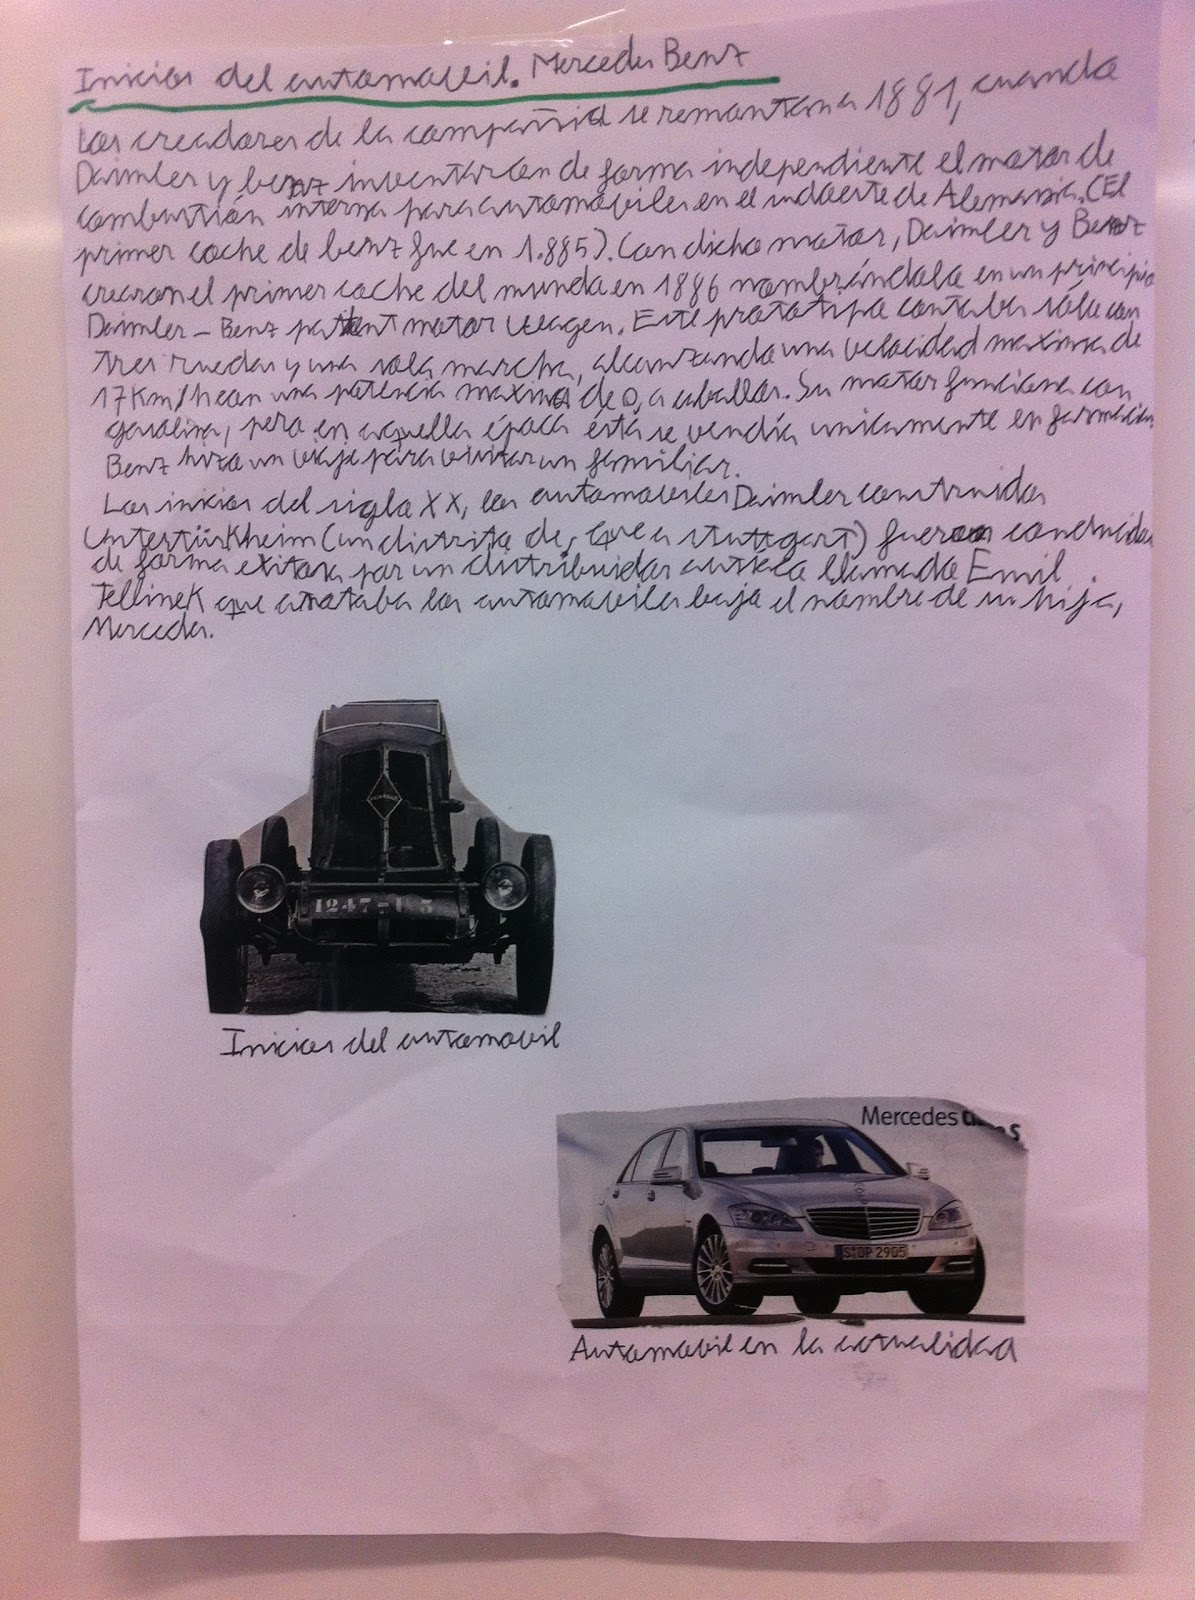 Inicios del automovil. Mercedes Benz
Los creadores de la compañia se remontan a 1881, cuando
Daimler y benz inventaron de forma independiente el motor de
combustión interna para automóviles en el sudoeste de Alemania. (El
primer coche de benz fue en 1.885). Con dicho motor, Daimler y Benz
crearon el primer coche del mundo en 1886 nombrándolo en un principio
Daimler - Benz patent motor wagen. Este prototipo contaba sólo con
tres ruedas y una sola marcha, alcanzando una velocidad maxima de
17 Km/h con una potencia maxima de 0, caballos. Su motor funciona con
gasolina, pero en aquella época ésta se vendía unicamente en farmacias
Benz hizo un viaje para visitar un familiar.
Los inicios del siglo XX, los automoviles Daimler construidos
Untertürkheim (un distrito de, que es stuttgart) fueron conducidos
de forma exitosa por un distribuidor llamado Emil
Jellinek que los automoviles bajo el nombre de su hija,
Mercedes.
1247-U 5
Inicios del automovil
Mercedes S
S:DP 2905
Automovil en la actualidad